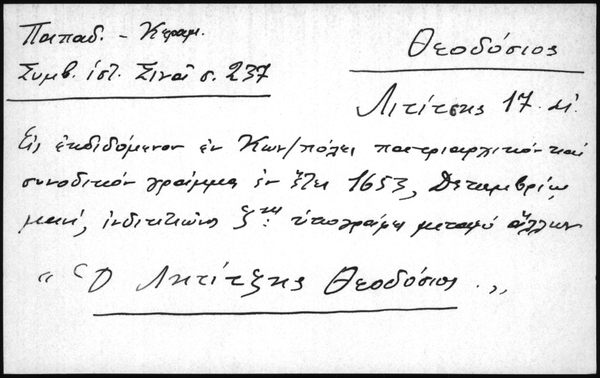 Παπαδ. - Κεραμ.
Συμβ. ἱστ. Σινᾶ σ. 237
Θεοδόσιος
Λιτίτσης 17. αἰ.
Εἰς ἐκδιδόμενον ἐν Κων/πόλει πατριαρχικὸν καὶ
συνοδικὸν γράμμα ἐν ἔτει 1653, Δεκεμβρίῳ
μηνί, ἰνδικτιῶνος ζης ὑπογράφει μεταξὺ ἄλλων
“ Ὁ Λητίτζης Θεοδόσιος . „